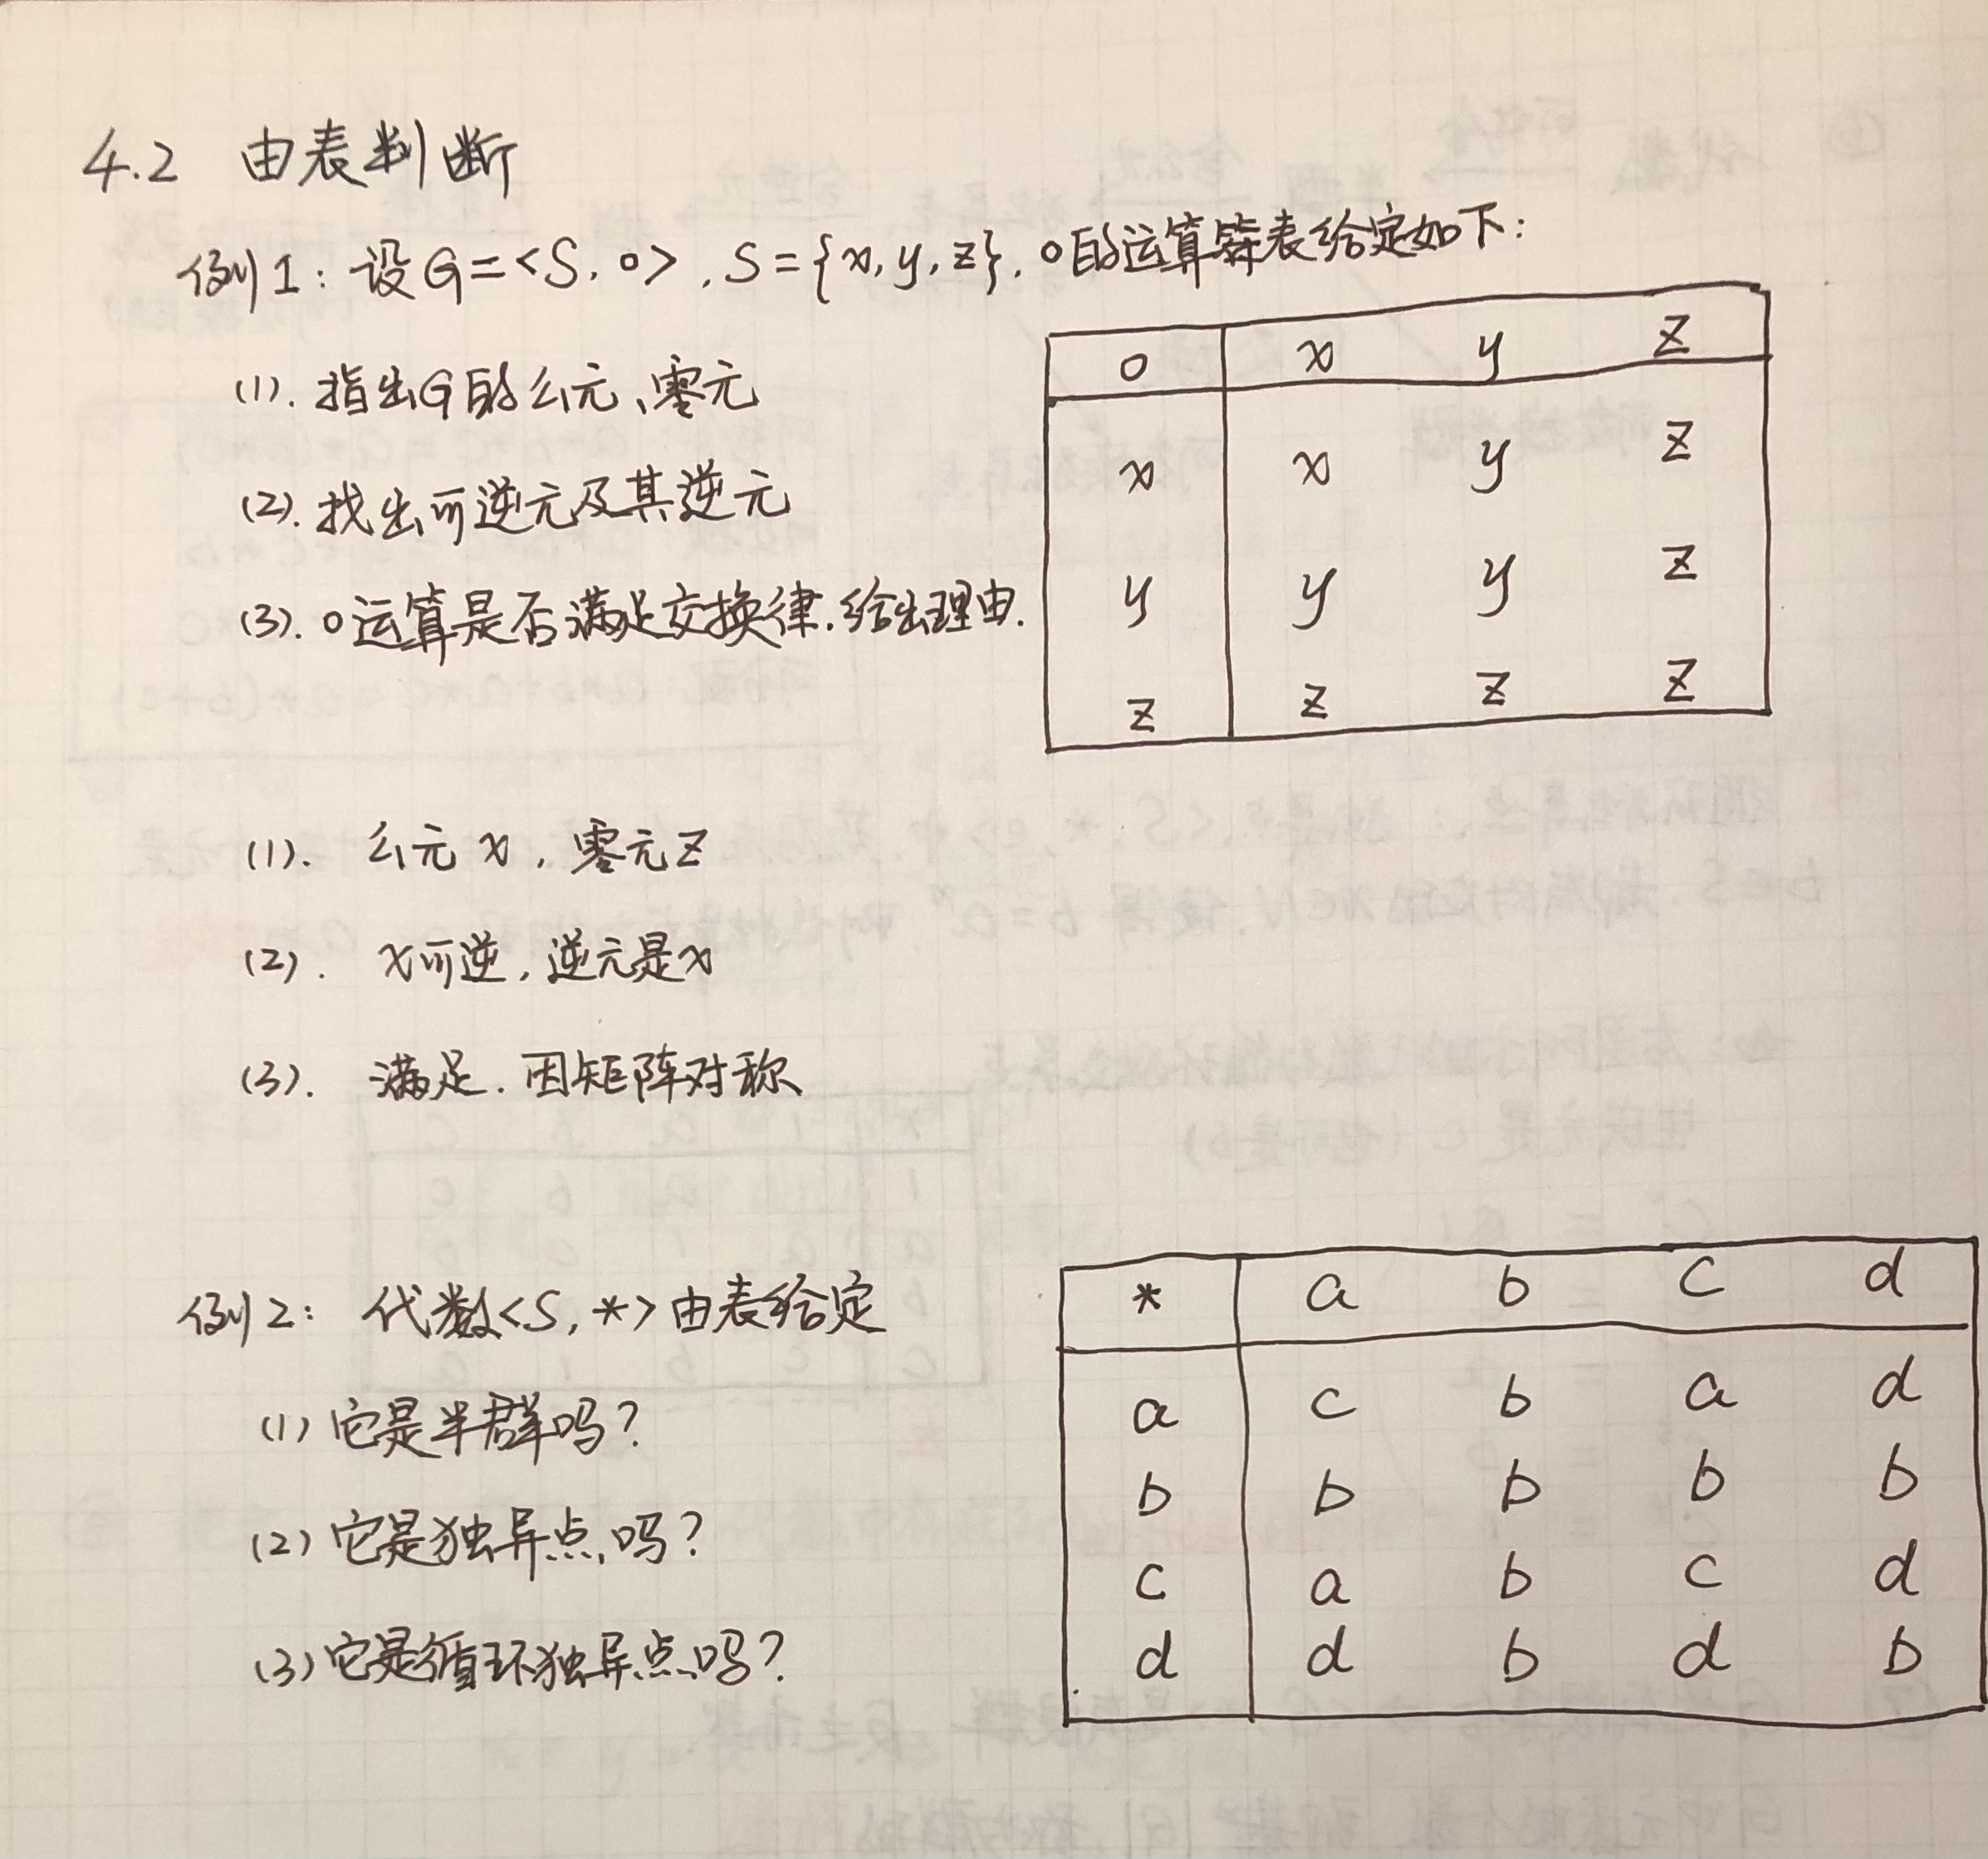 4.2 由表判断
例1: 设G=<S, o>, S={x, y, z}, o的运算表给定如下:
(1). 指出G的幺元、零元
(2). 找出可逆元及其逆元
(3). o运算是否满足交换律. 给出理由.
o x y z
x x y z
y y y z
z z z z
(1). 幺元 x, 零元 z
(2). x可逆, 逆元是x
(3). 满足. 因矩阵对称
例2: 代数<S, *>由表给定
(1) 它是半群吗?
(2) 它是独异点吗?
(3) 它是循环独异点吗?
* a b c d
a c b a d
b b b b b
c a b c d
d d b d b